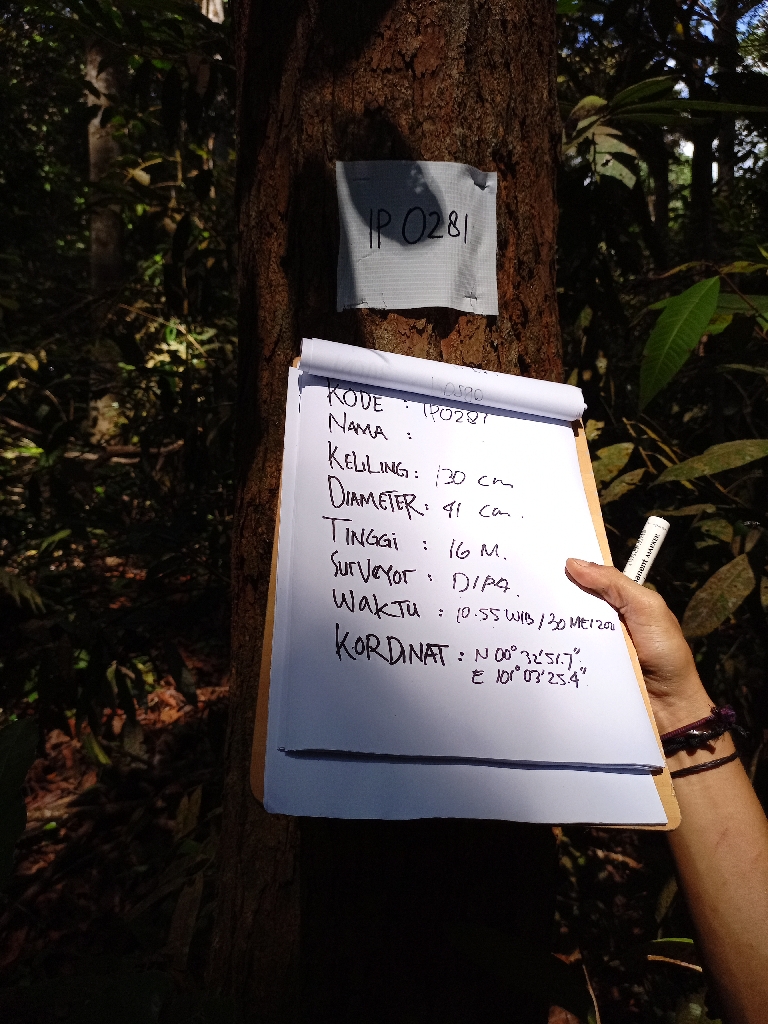 IP 0281
KODE : IP0281
NAMA :
KELILING : 130 cm
DIAMETER : 41 cm.
TINGGI : 16 M.
SURVEYOT : DIPA.
WAKTU : 10.55 WIB / 30 MEI 20
KORDINAT : N 00° 32' 51.7"
E 101° 03' 25.4"
MARKER